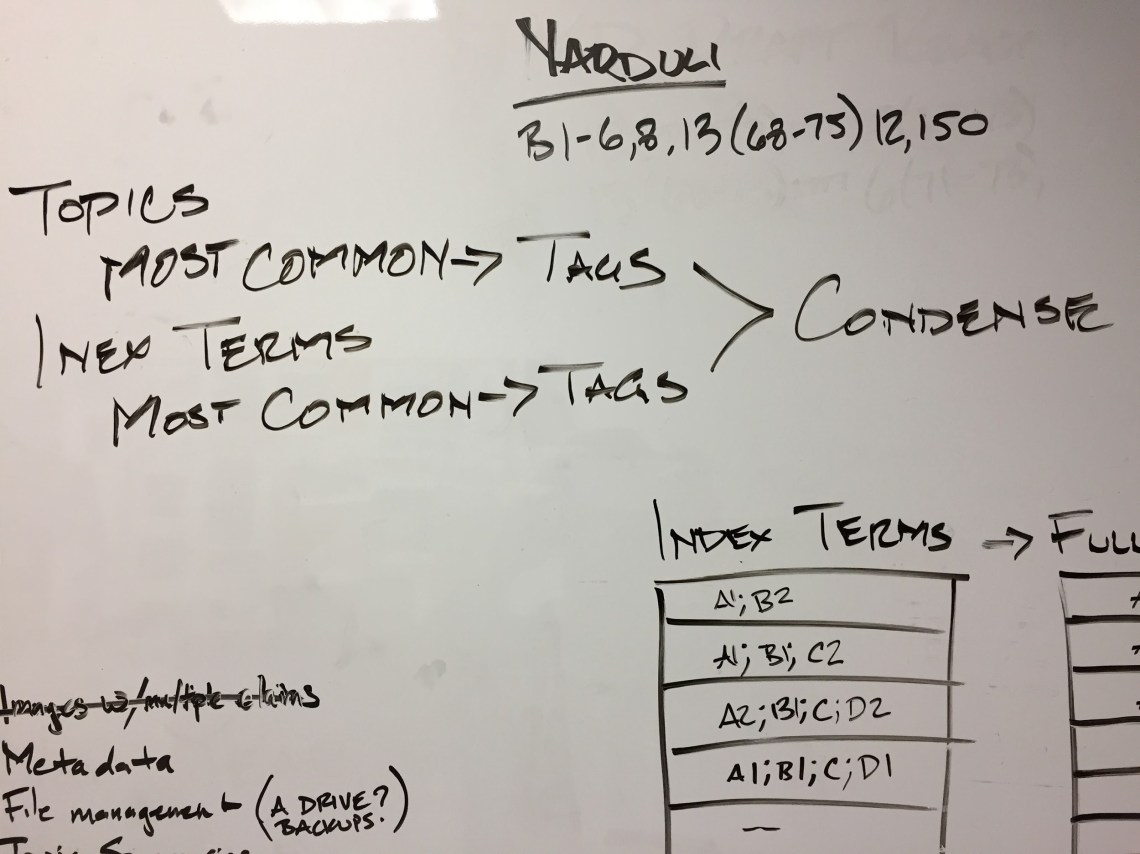 YARDULI
B1-6,8,13(68-75)12,150
TOPICS
MOST COMMON -> TAGS
INEX TERMS
MOST COMMON -> TAGS
> CONDENSE
INDEX TERMS -> FULL
A1; B2
A1; B1; C2
A2; B1; C; D2
A1; B1; C; D1
Images w/multiple claims
Metadata
File management (A DRIVE? BACKUPS?)